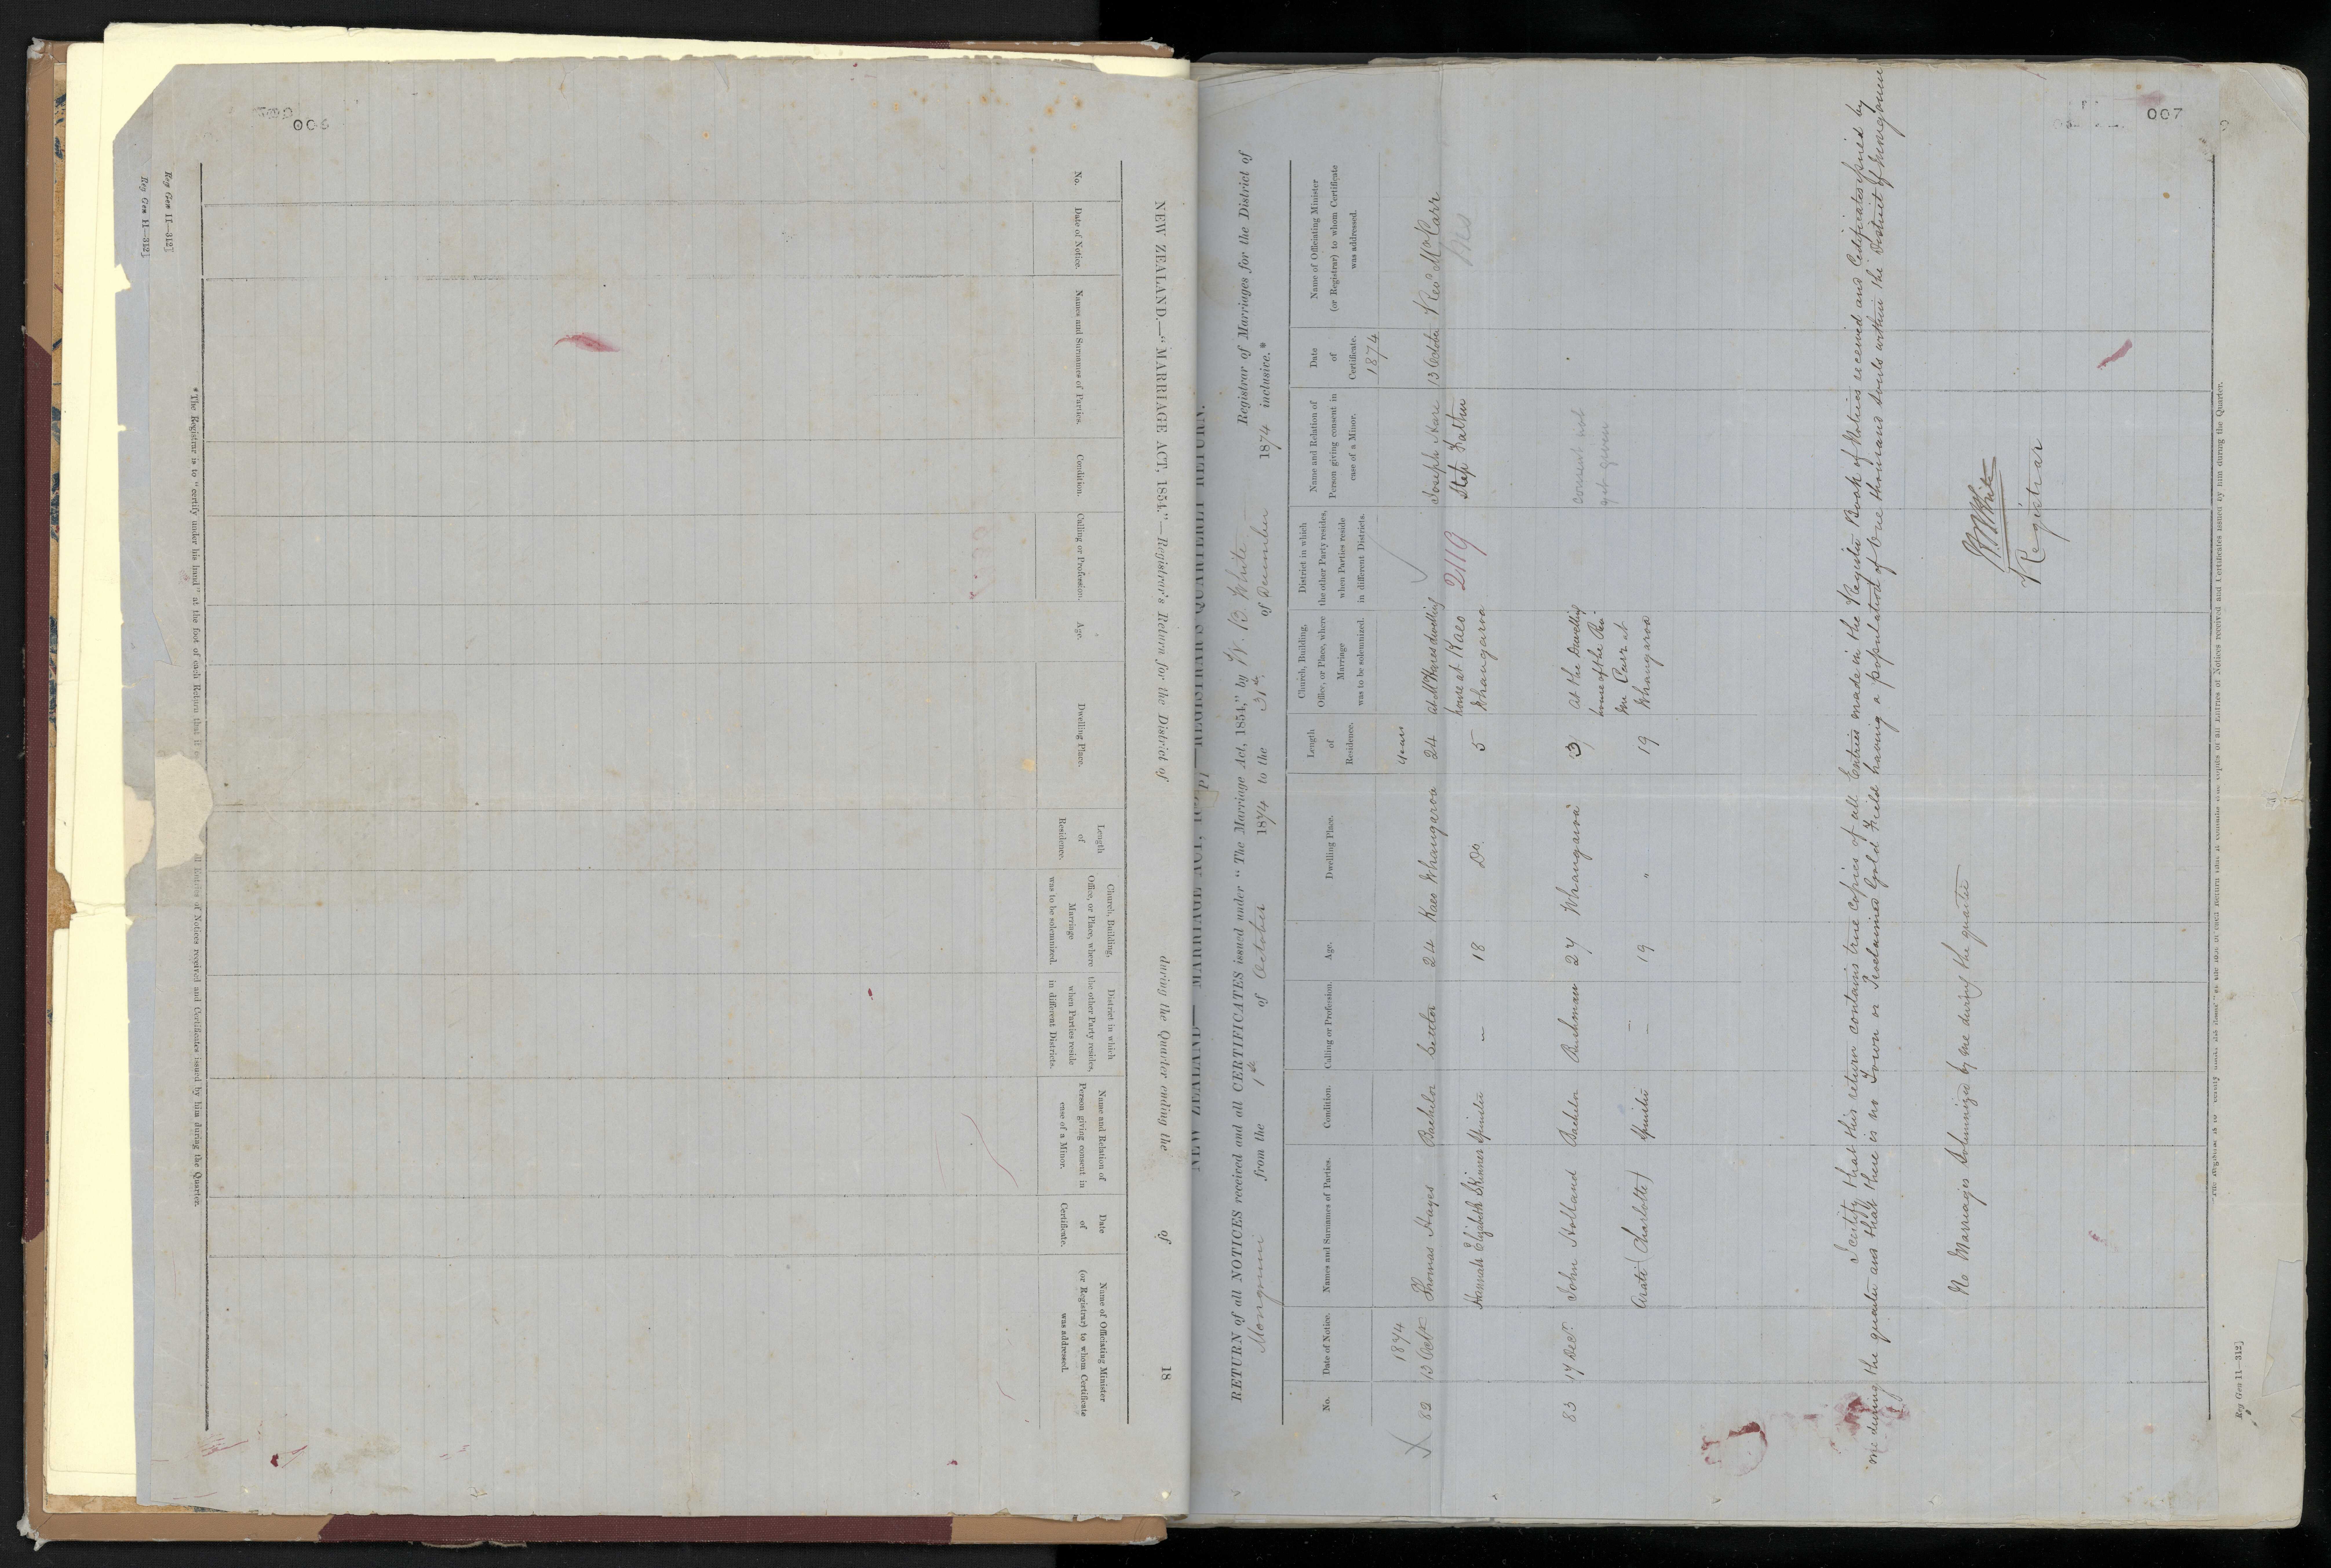 006
Reg Gen 11—312]
Reg Gen 11—312]
NEW ZEALAND.—"MARRIAGE ACT, 1854."—Registrar's Return for the District of during the Quarter ending the of 18
No.
Date of Notice.
Names and Surnames of Parties.
Condition.
Calling or Profession.
Age.
Dwelling Place.
Length
of
Residence.
Church, Building,
Office, or Place, where
Marriage
was to be solemnized.
District in which
the other Party resides,
when Parties reside
in different Districts.
Name and Relation of
Person giving consent in
case of a Minor.
Date
of
Certificate.
Name of Officiating Minister
(or Registrar) to whom Certificate
was addressed.
*The Registrar is to "certify under his hand" at the foot of each Return that it all Entries of Notices received and Certificates issued by him during the Quarter.
007
NEW ZEALAND—"MARRIAGE ACT, —REGISTRAR'S QUARTERLY RETURN.
RETURN of all NOTICES received and all CERTIFICATES issued under "The Marriage Act, 1854," by W. B. White Registrar of Marriages for the District of
Mongonui from the 1st of October 1874 to the 31st of December 1874 inclusive.*
No.
Date of Notice.
Names and Surnames of Parties.
Condition.
Calling or Profession.
Age.
Dwelling Place.
Length
of
Residence.
Church, Building,
Office, or Place, where
Marriage
was to be solemnized.
District in which
the other Party resides,
when Parties reside
in different Districts.
Name and Relation of
Person giving consent in
case of a Minor.
Date
of
Certificate.
Name of Officiating Minister
(or Registrar) to whom Certificate
was addressed.
1874 years 1874
82 13 Octr Thomas Hayes Bachelor Settler 24 Kaeo Whangaroa 24 at Mr Hares dwelling Joseph Hare 13 October Revd Mr Carr
house at Kaeo 2119 Step Father
Hannah Elizabeth Skinner Spinster — 18 Do 5 Whangaroa
83 17 Decr John Holland Bachelor Bushman 27 Whangaroa 3 At the Dwelling consent not
house of the Rev yet given
Mr Carr at
Arati (Charlotte) Spinster — 19 " 19 Whangaroa
I certify that this return contains true copies of all Entries made in the Register Book of Notices received and Certificates issued by
me during the quarter and that there is no Town or Proclaimed Gold Field having a population of One thousand Souls within the District of Mongonui
No Marriages Solemnized by me during the quarter
W B White
Registrar
Reg Gen 11—312]